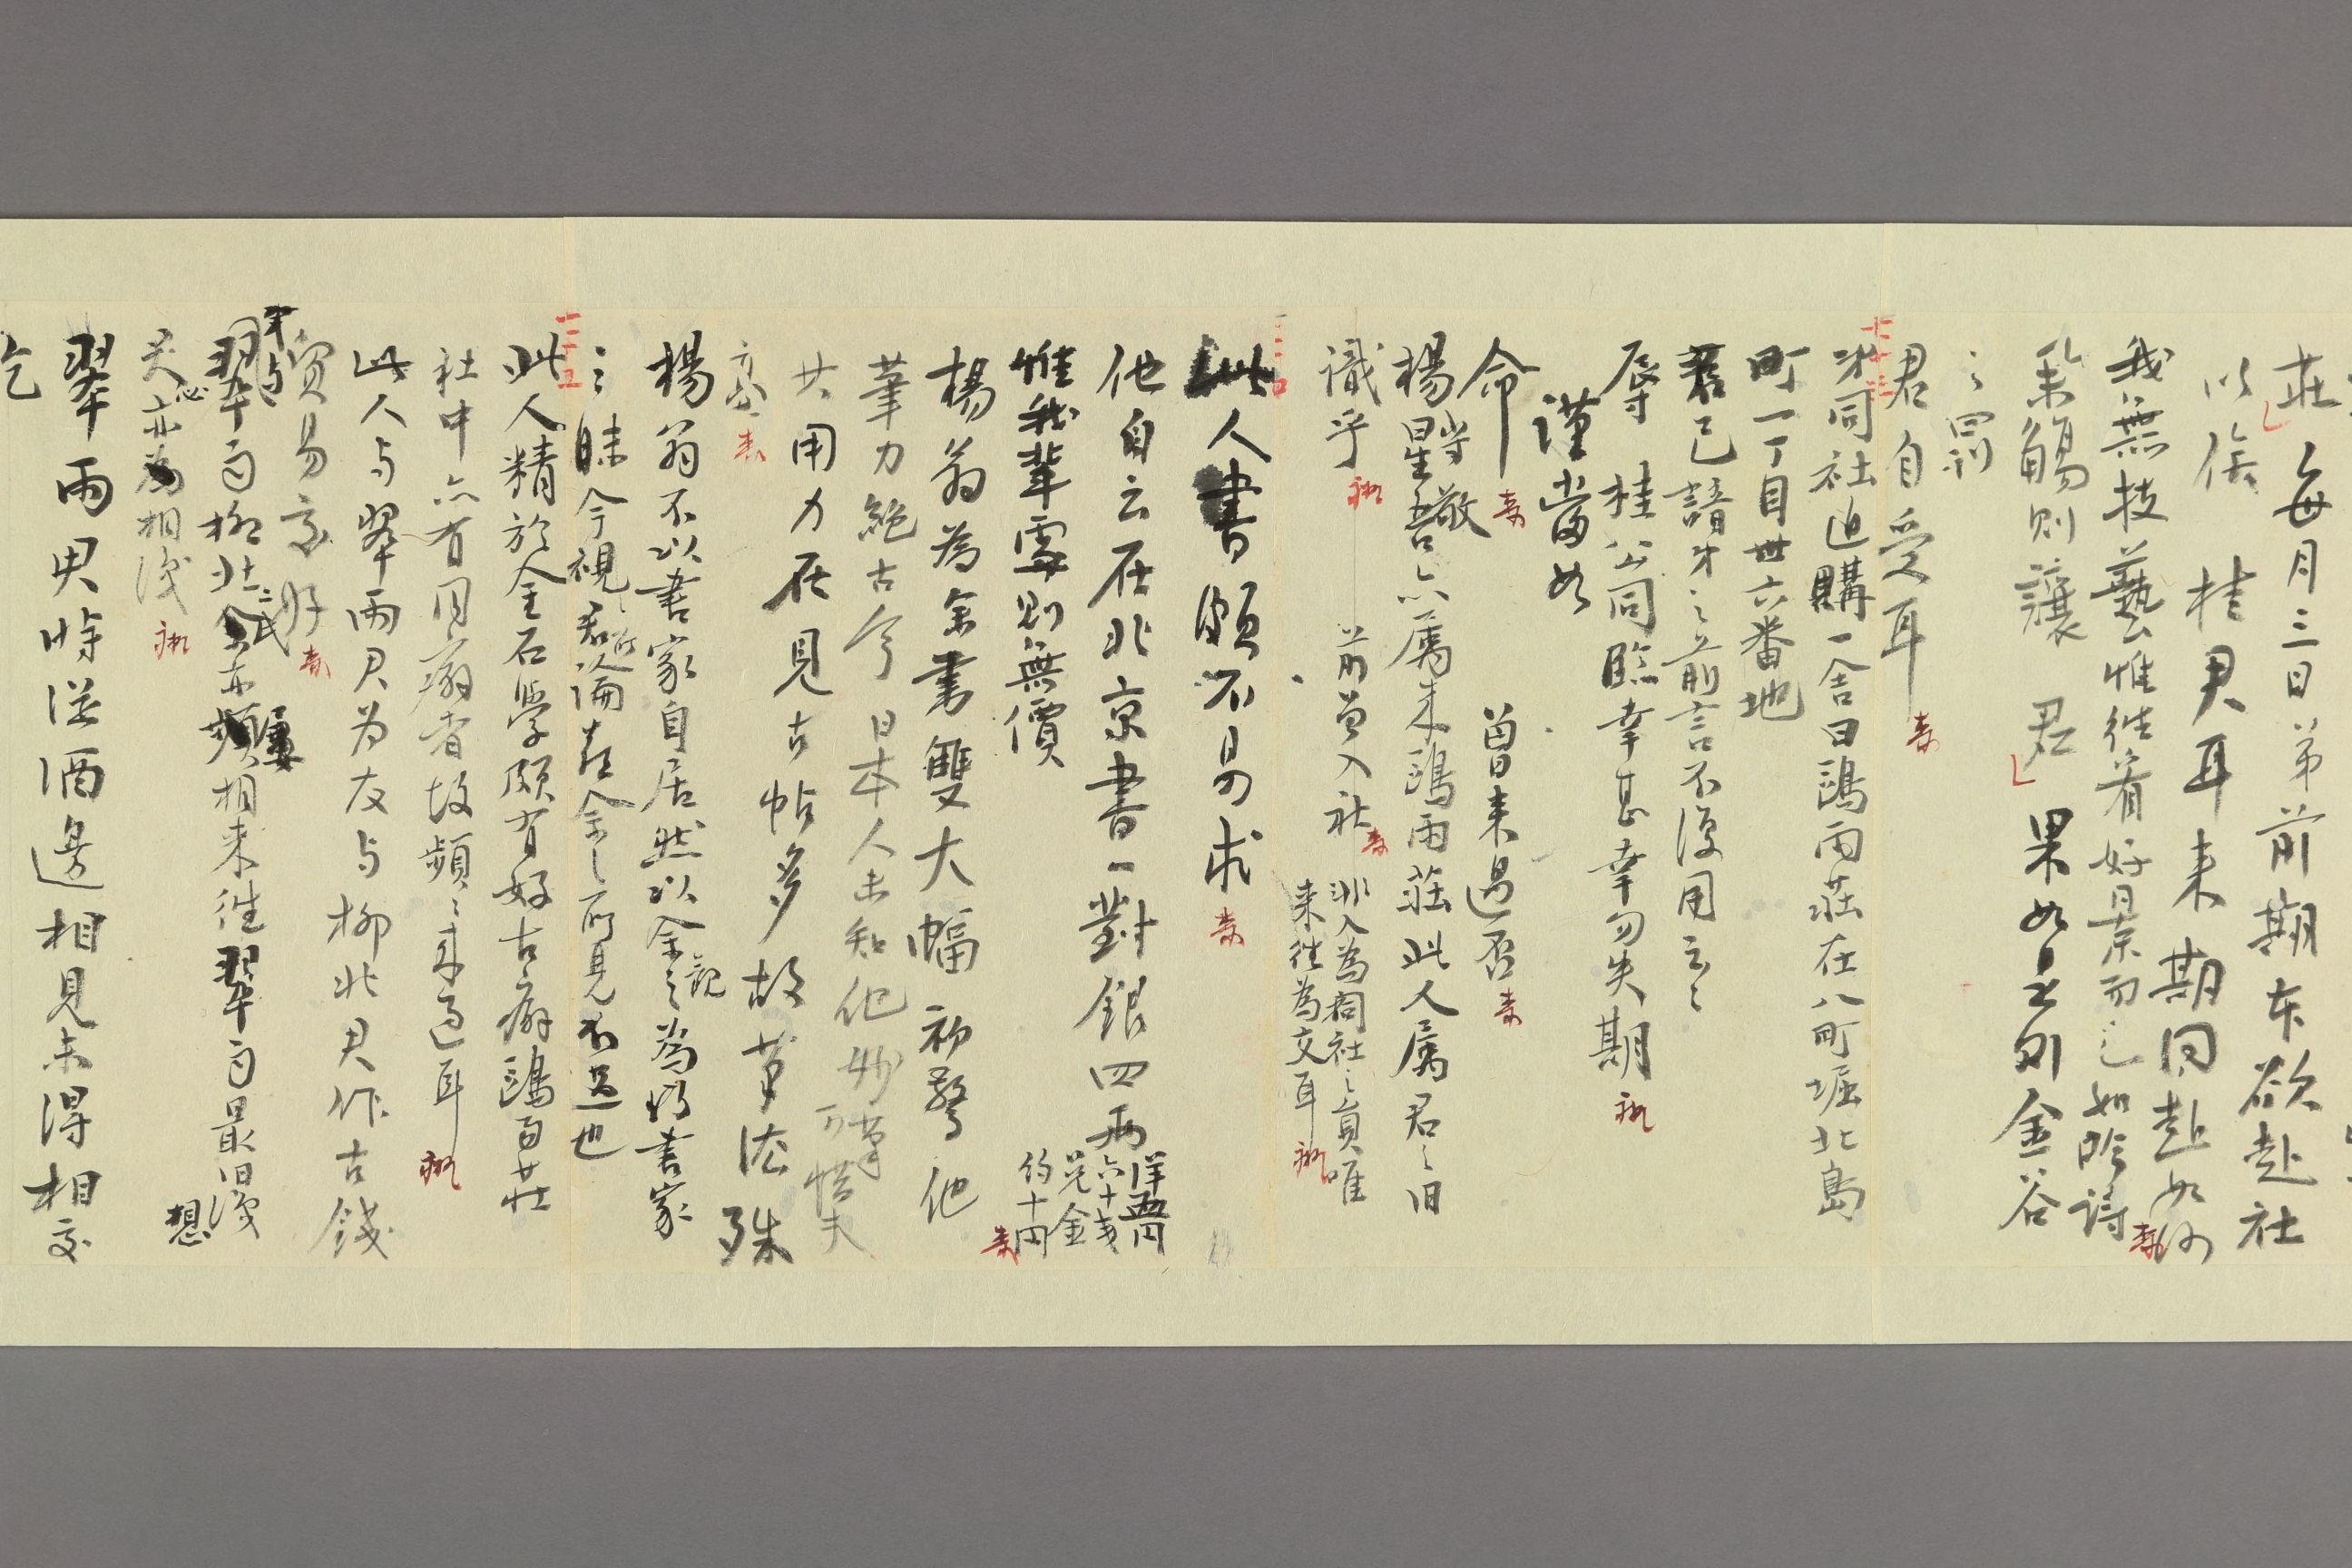 莊每月三日弟前期在欲赴社
以俟 桂君耳来期同赴如何
我無技藝惟往看好景而已如吟詩
舉觴則讓 君果如是則金谷
之罰
君自受耳
弟同社近購一舍曰鷗雨莊在八町堀北島
町一丁目卅六番地
君已諳弟之前言不復用云云
辱桂公同臨幸甚幸勿失期
謹當如
命
楊惺吾亦屬来鷗雨莊此人屬君之旧
識乎
曾来過否
前曾入社
非入為同社之員唯
来往為交耳
此人書頗不易求
他自云在北京書一對銀四両
洋五円
六十戔
兌金
約十円
惟我輩要則無價
楊翁為余書雙大幅初驚他
筆力絶古今日本人未知他妙筆可惜夫
其用力在見古帖多故筆法殊
高
楊翁不以書家自居然以余觀之為巧書家
之昧今視君所論者余之所見不過也
此人精於金石學頗有好古癖鷗雨莊
社中亦有同癖者故頻頻来過耳
此人与翠雨君为友与柳北君作古錢
貿易
翠雨柳北二氏余亦屢相来往翠雨最旧識想
君亦為相識
翠雨君時從酒邊相見未得相交